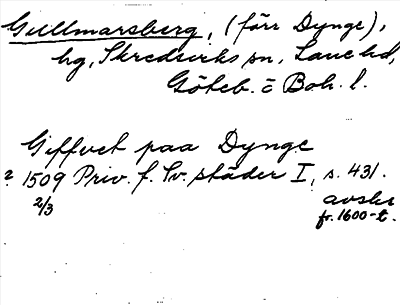 Gullmarsberg, (förr Dynge),
hg, Skredsviks sn, Lane hd,
Göteb. o Boh. l.
Giffvet paa Dynge
? 1509 Priv. f. Sv. städer I, s. 431.
2/3
avskr
fr. 1600-t.